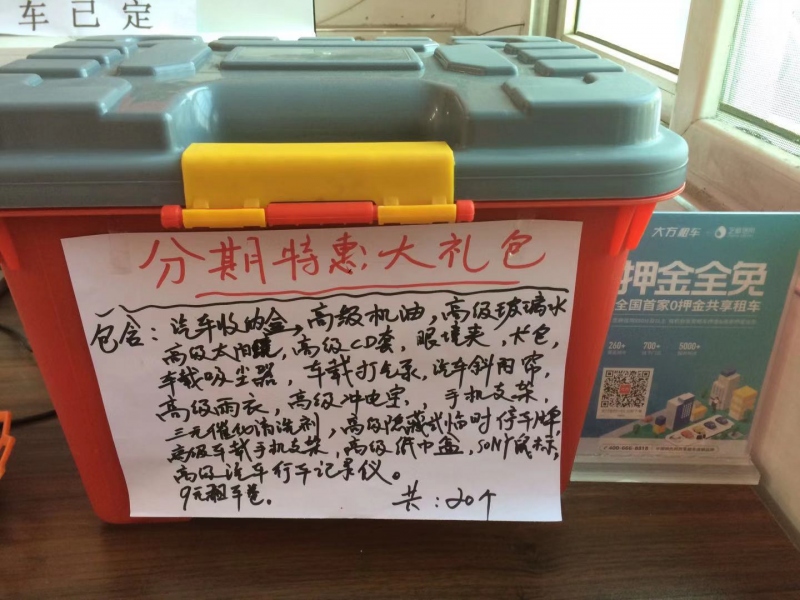 车已定
分期特惠大礼包
包含：汽车收纳盒，高级机油，高级玻璃水
高级太阳镜，高级CD套，眼境夹，卡包，
车载吸尘器，车载打气泵，汽车斜阳帘，
高级雨衣，高级冲电宝，手机支架，
三元催化清洗剂，高级隐藏式临时停车牌
高级车载手机支架，高级纸巾盒，SONY鼠标，
高级汽车行车记录仪。
9元租车卷。
共：20个
大方租车
押金全免
全国首家0押金共享租车
260+
700+
5000+